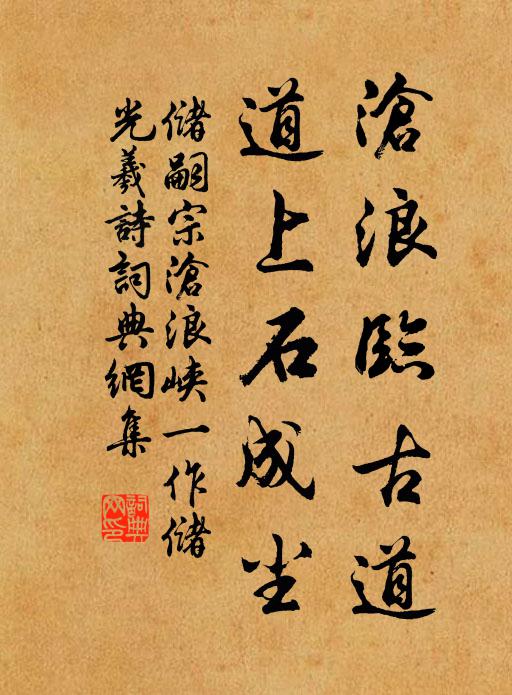 滄浪臨古道
道上石成尘
儲嗣宗滄浪峽一作儲
光羲詩詞典網集
詞典網印